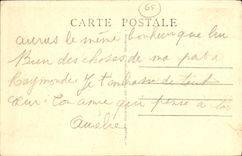 65
CARTE POSTALE
auras le même bonheur que lui
Bien des choses de ma part a
Raymonde. Je t'embrasse de tout
cœur. Ton amie qui pense a toi
Aurélie